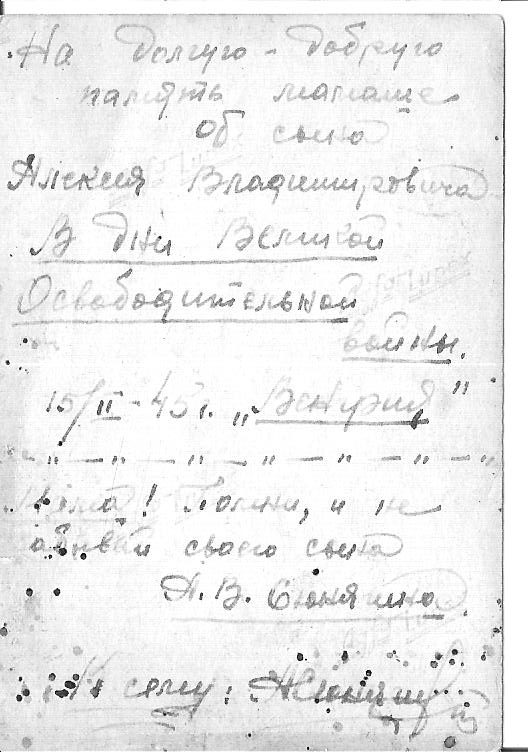 На долгую - добруго
память мамаше
об сына
Алексея Владимировича
В дни Великой
Освободительной
войны.
15/II - 45 г. „Венгрия”
— „ — „ — „ — „ — „ — „ — „
Мема! Помни, и не
забывай своего сына
А. В. Сюнякина
К сему: